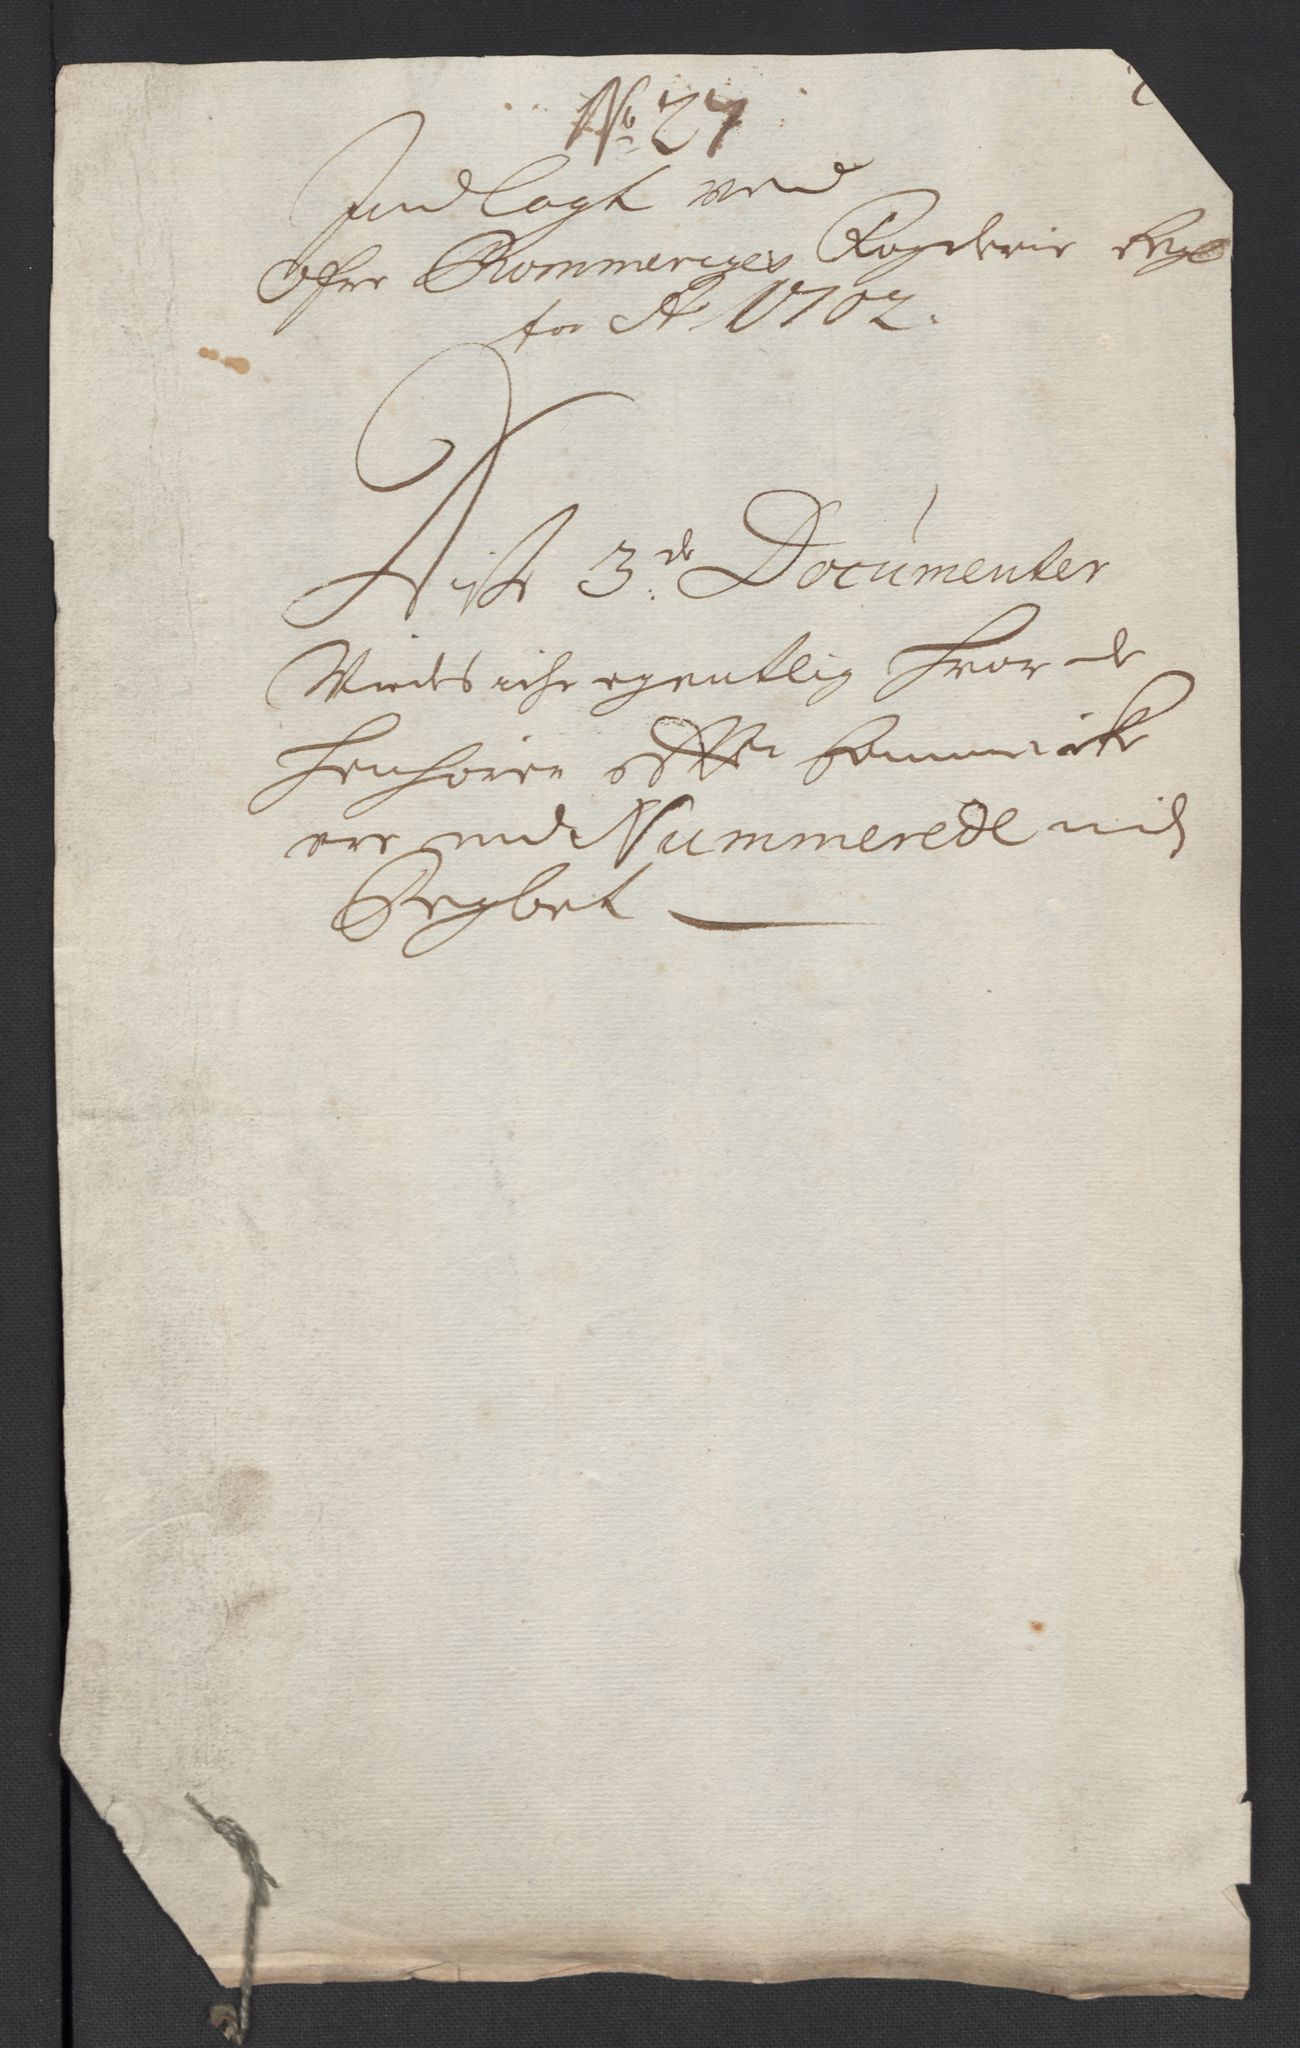 No 27
Indlagt ved
Øfre Rommeriges Fogderie Regb
for Ao 1702.
Disse 3de Documenter
Viedes iche egentlig hvor de
henhører efftersom de icke
ere med Nummerede udj
Regbet